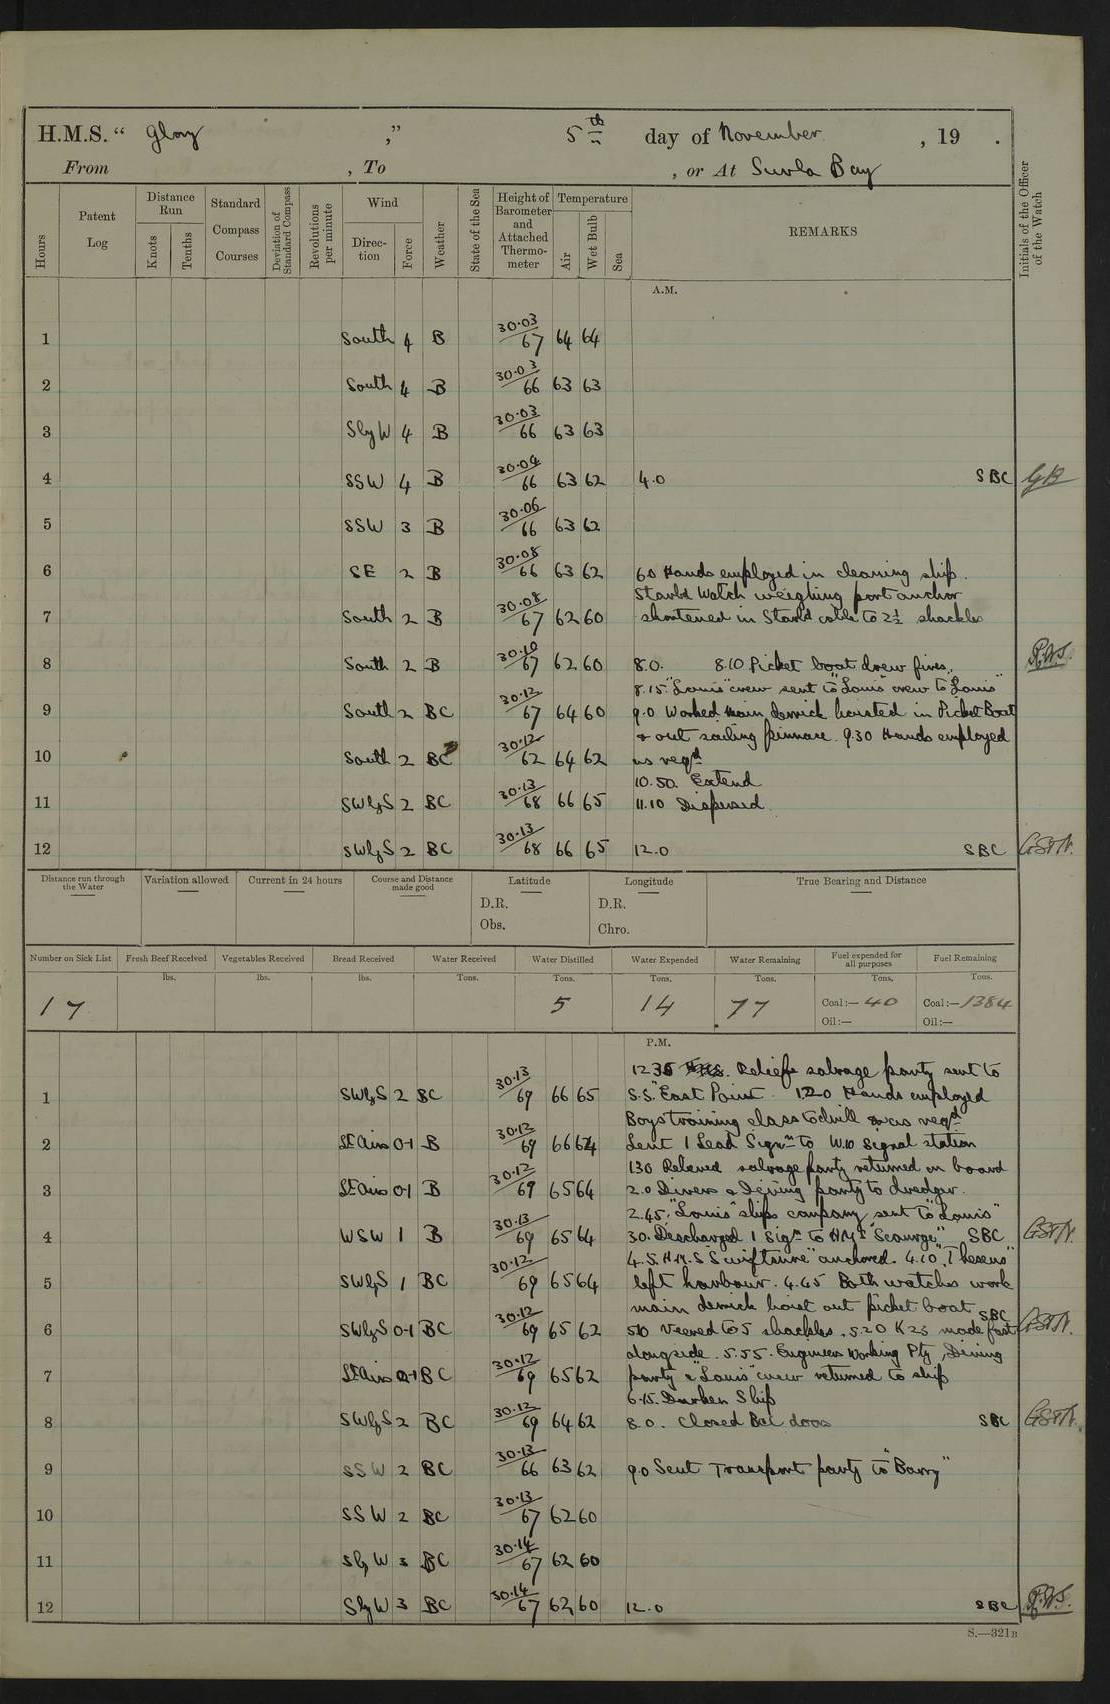 H.M.S. “ Glory ,” 5th day of November , 19 .
From , To , or At Suvla Bay
Hours
Patent Log
Distance Run
Knots
Tenths
Standard Compass Courses
Deviation of Standard Compass
Revolutions per minute
Wind
Direc-tion
Force
Weather
State of the Sea
Height of Barometer and Attached Thermo-meter
Temperature
Air
Wet Bulb
Sea
REMARKS
Initials of the Officer of the Watch
A.M.
1 South 4 B 30.03/67 64 64
2 South 4 B 30.03/66 63 63
3 SbyW 4 B 30.03/66 63 63
4 SSW 4 B 30.04/66 63 62 4.0 SBC
5 SSW 3 B 30.06/66 63 62
6 SE 2 B 30.08/66 63 62 60 Hands employed in cleaning ship.
Starbd Watch weighing port anchor
7 South 2 B 30.08/67 62 60 shortened in Starbd cable to 2½ shackles
8 South 2 B 30.10/67 62 60 8.0. 8.10 Picket boat drew fires.
8.15. "Louis" crew sent to "Louis" crew to "Louis"
9 South 2 BC 30.12/67 64 60 9.0 Worked main derrick hoisted in Picket Boat
& out sailing pinnace. 9.30 Hands employed
10 South 2 BC 30.12/62 64 62 as reqd
10.50. Extend
11 SWbyS 2 BC 30.13/68 66 65 11.10 Dispersed
12 SWbyS 2 BC 30.13/68 66 65 12.0 SBC
Distance run through the Water
Variation allowed
Current in 24 hours
Course and Distance made good
Latitude
D.R.
Obs.
Longitude
D.R.
Chro.
True Bearing and Distance
Number on Sick List
Fresh Beef Received
Vegetables Received
Bread Received
Water Received
Water Distilled
Water Expended
Water Remaining
Fuel expended for all purposes
Fuel Remaining
lbs. lbs. lbs. Tons. Tons. Tons. Tons. Tons. Tons.
17 5 14 77 Coal:— 40 Coal:— 1384
Oil:— Oil:—
P.M.
12 35 Reliefs salvage party sent to
1 SWbyS 2 BC 30.13/69 66 65 S.S. "East Point. 1.20 Hands employed
Boys training class to drill as reqd
2 Lt Airs 0-1 B 30.12/69 66 64 Sent 1 Lead Sign to W.O Signal station
1 30 Relieved salvage party returned on board
3 Lt Airs 0-1 B 30.12/69 65 64 2.0 Divers & Diving party to dredger.
2.45. "Louis" ships company sent to "Louis"
4 WSW 1 B 30.13/69 65 64 30. Discharged 1 Sign to HMS "Scourge" SBC
4.5. H.M.S "Swiftsure" anchored. 4.10, "Theseus"
5 SWbyS 1 BC 30.12/69 65 64 left harbour. 4.45 Both watches work
main derrick hoist out picket boat SBC
6 SWbyS 0-1 BC 30.12/69 65 62 510 Veered to 5 shackles. 5.20 K 25 made fast
alongside. 5.55. Engineers Working Pty, Diving
7 Lt Airs 0-1 BC 30.12/69 65 62 party & "Louis" crew returned to ship
6.15. Darken Ship
8 SWbyS 2 BC 30.12/69 64 62 8.0. Closed Bel doors SBC
9 SSW 2 BC 30.13/66 63 62 9.0 Sent Transport party to "Barry"
10 SSW 2 BC 30.13/67 62 60
11 SbyW 3 BC 30.14/67 62 60
12 SbyW 3 BC 30.14/67 62 60 12.0 SBC
S.—321B